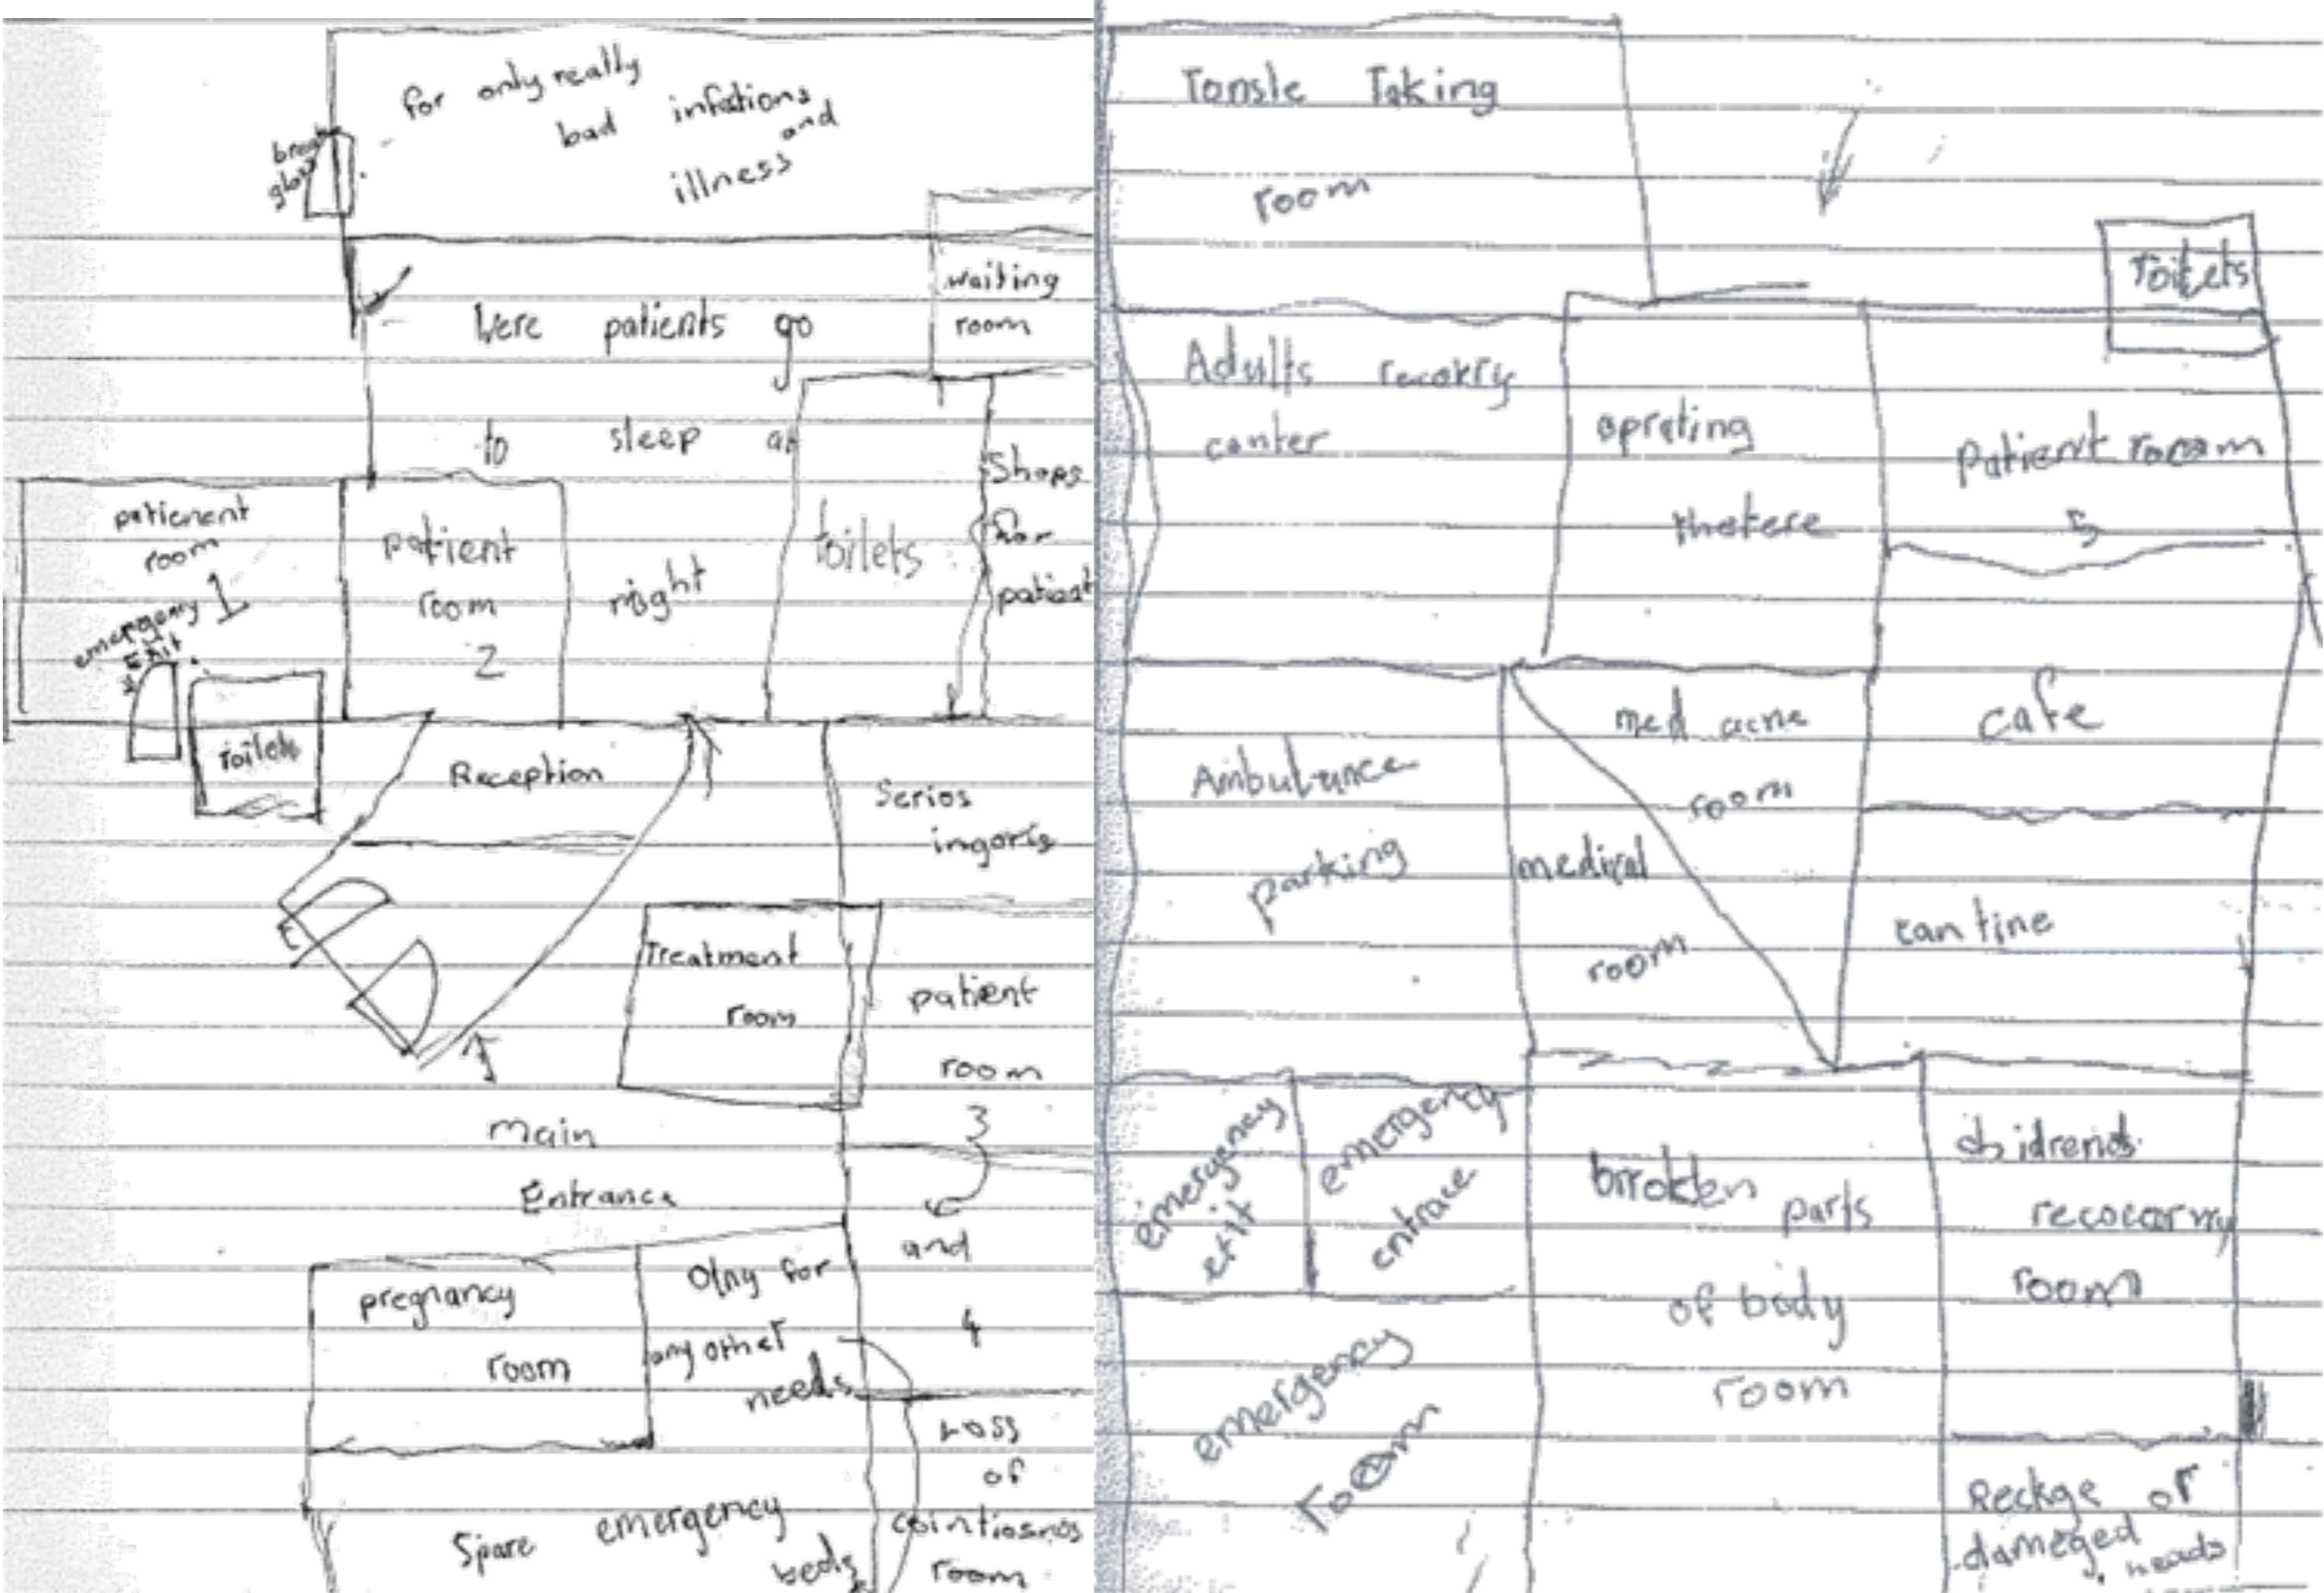 for only really
bad infations
and
illness
break
glass
waiting
room
Were patients go
to sleep at
night
toilets
Shops
for
patient
patienent
room
1
emergency
Exit
toilets
patient
room
2
Reception
Serios
ingoris
Treatment
room
patient
room
3
and
4
main
Entrance
pregnancy
room
Olny for
any other
needs
Loss
of
cointiosnos
room
Spare emergency
beds
Tonsle Taking
room
Toilets
Adults recovry
center
oprating
thetere
patient room
5
Ambulance
parking
med acne
room
medical
room
cafe
cantine
emergency
exit
emergency
entrace
emergency
room
broken parts
of body
room
chidrends
recocarvry
room
or
dameged
heads